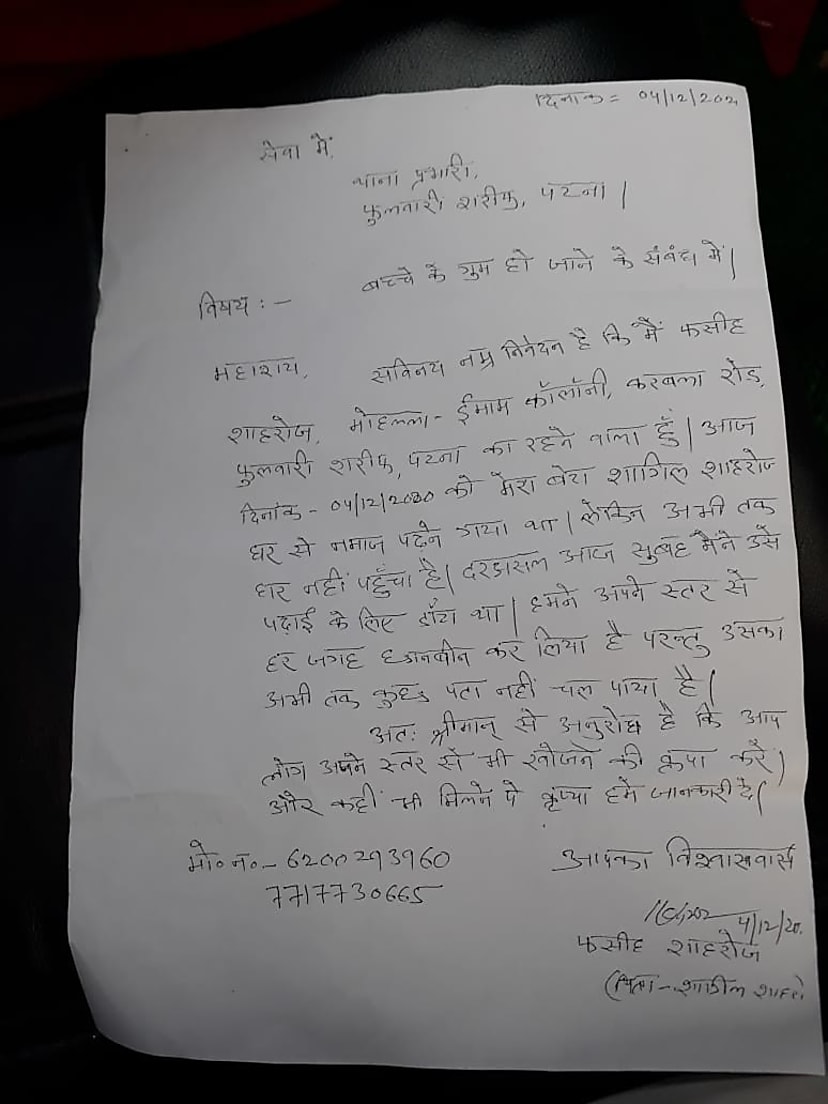 दिनांक = 04/12/202
सेवा में,
थाना प्रभारी,
फुलवारी शरीफ, पटना |
विषय :- बच्चे के गुम हो जाने के संबंध में |
महाशय, सविनय नम्र निवेदन है कि मैं फसीह
शाहरोज, मोहल्ला - ईमाम कॉलॉनी, करबला रोड,
फुलवारी शरीफ, पटना का रहने वाला हूँ | आज
दिनांक - 04/12/2020 को मेरा बेटा शागिल शाहरोज
घर से नमाज पढ़ने गया था | लेकिन अभी तक
घर नहीं पहुँचा है | दरअसल आज सुबह मैंने उसे
पढ़ाई के लिए डाँटा था | हमने अपने स्तर से
हर जगह छानबीन कर लिया है परन्तु उसका
अभी तक कुछ पता नहीं चल पाया है |
अतः श्रीमान् से अनुरोध है कि आप
लोग अपने स्तर से भी खोजने की कृपा करें |
और कहीं भी मिलने पे कृप्या हमें जानकारी दें |
मो० न० - 6200293960
7717730665
आपका विश्वासवार्स
4/12/20
फसीह शाहरोज
(पिता - शागील शाहरो